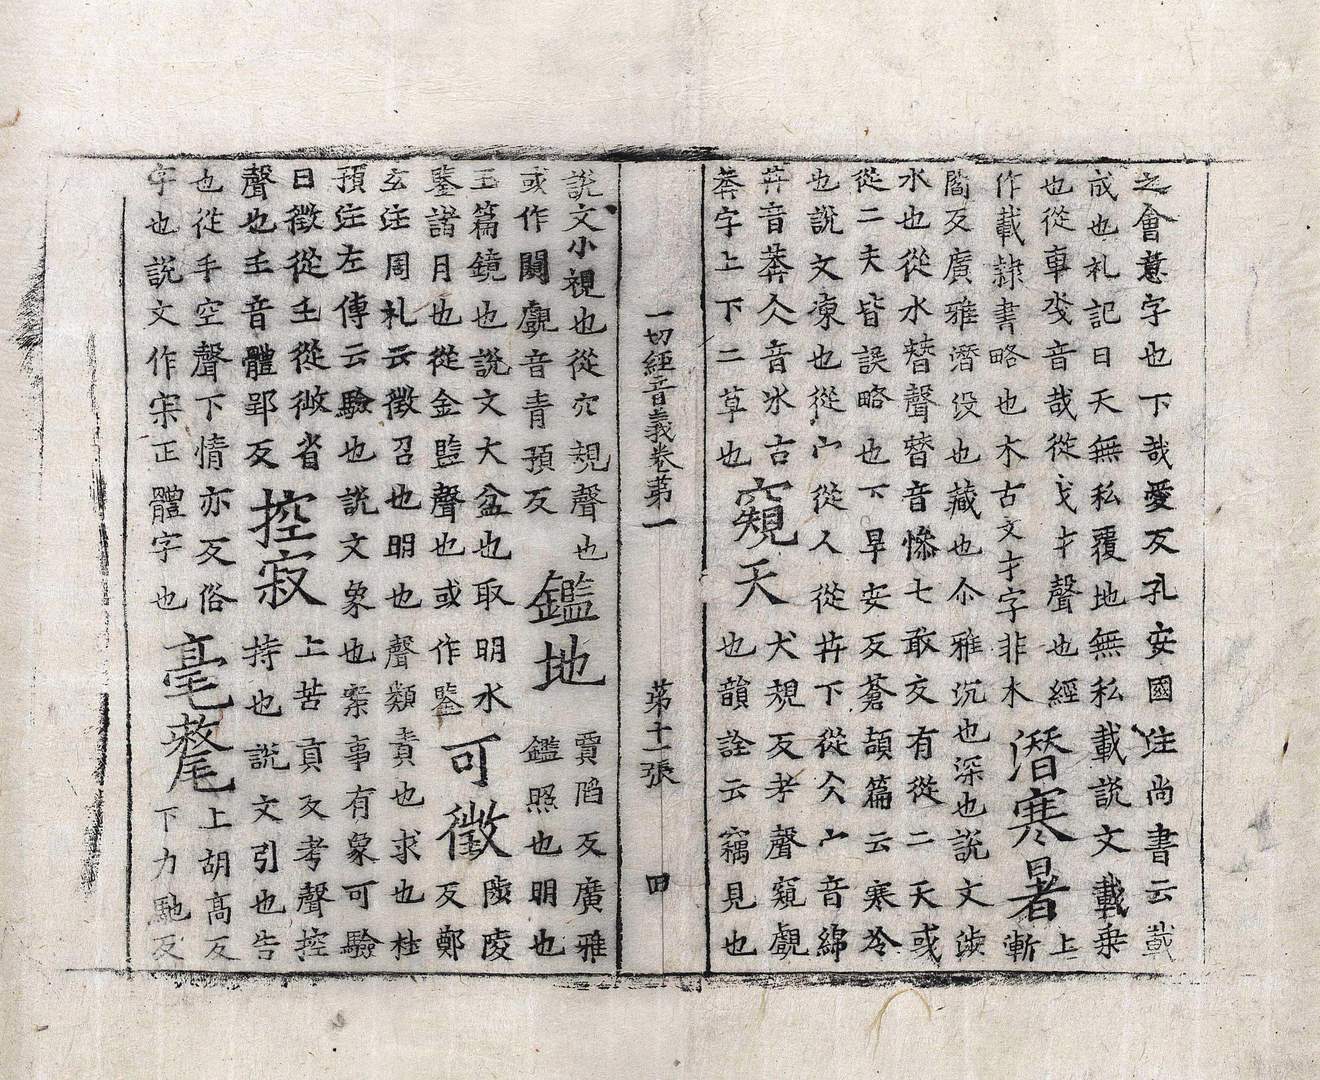 之會意字也下哉愛反孔安國注尚書云載
成也礼記曰天無私覆地無私載說文載乘
也從車𢦏音哉從戈才聲也經
作載隷書略也木古文才字非木
潛寒暑
上
漸
閻反廣雅潛没也藏也尒雅沉也深也說文涉
水也從水朁聲朁音慘七敢反有從二天或
從二夫皆誤略也下旱安反蒼頡篇云寒冷
也說文凍也從宀從人從茻下從仌宀音綿
茻音莽仌音氷古
莽字上下二草也
窺天
犬規反考聲窺覰
也韻詮云竊見也
一切經音義卷第一 第十一張 田
說文小視也從穴規聲也
或作闚覰音青預反
鑑地
賈陷反廣雅
鑑照也明也
玉篇鏡也說文大盆也取明水
鑒諸月也從金監聲也或作鑒
可徵
陵
反鄭
玄注周礼云徵召也明也聲類責也求也杜
預注左傳云驗也說文象也案事有象可驗
曰徵從𡈼從微省
聲也𡈼音體郢反
控寂
上苦貢反考聲控
持也說文引也告
也從手空聲下情亦反俗
字也說文作宋正體字也
毫氂
上胡高反
下力馳反